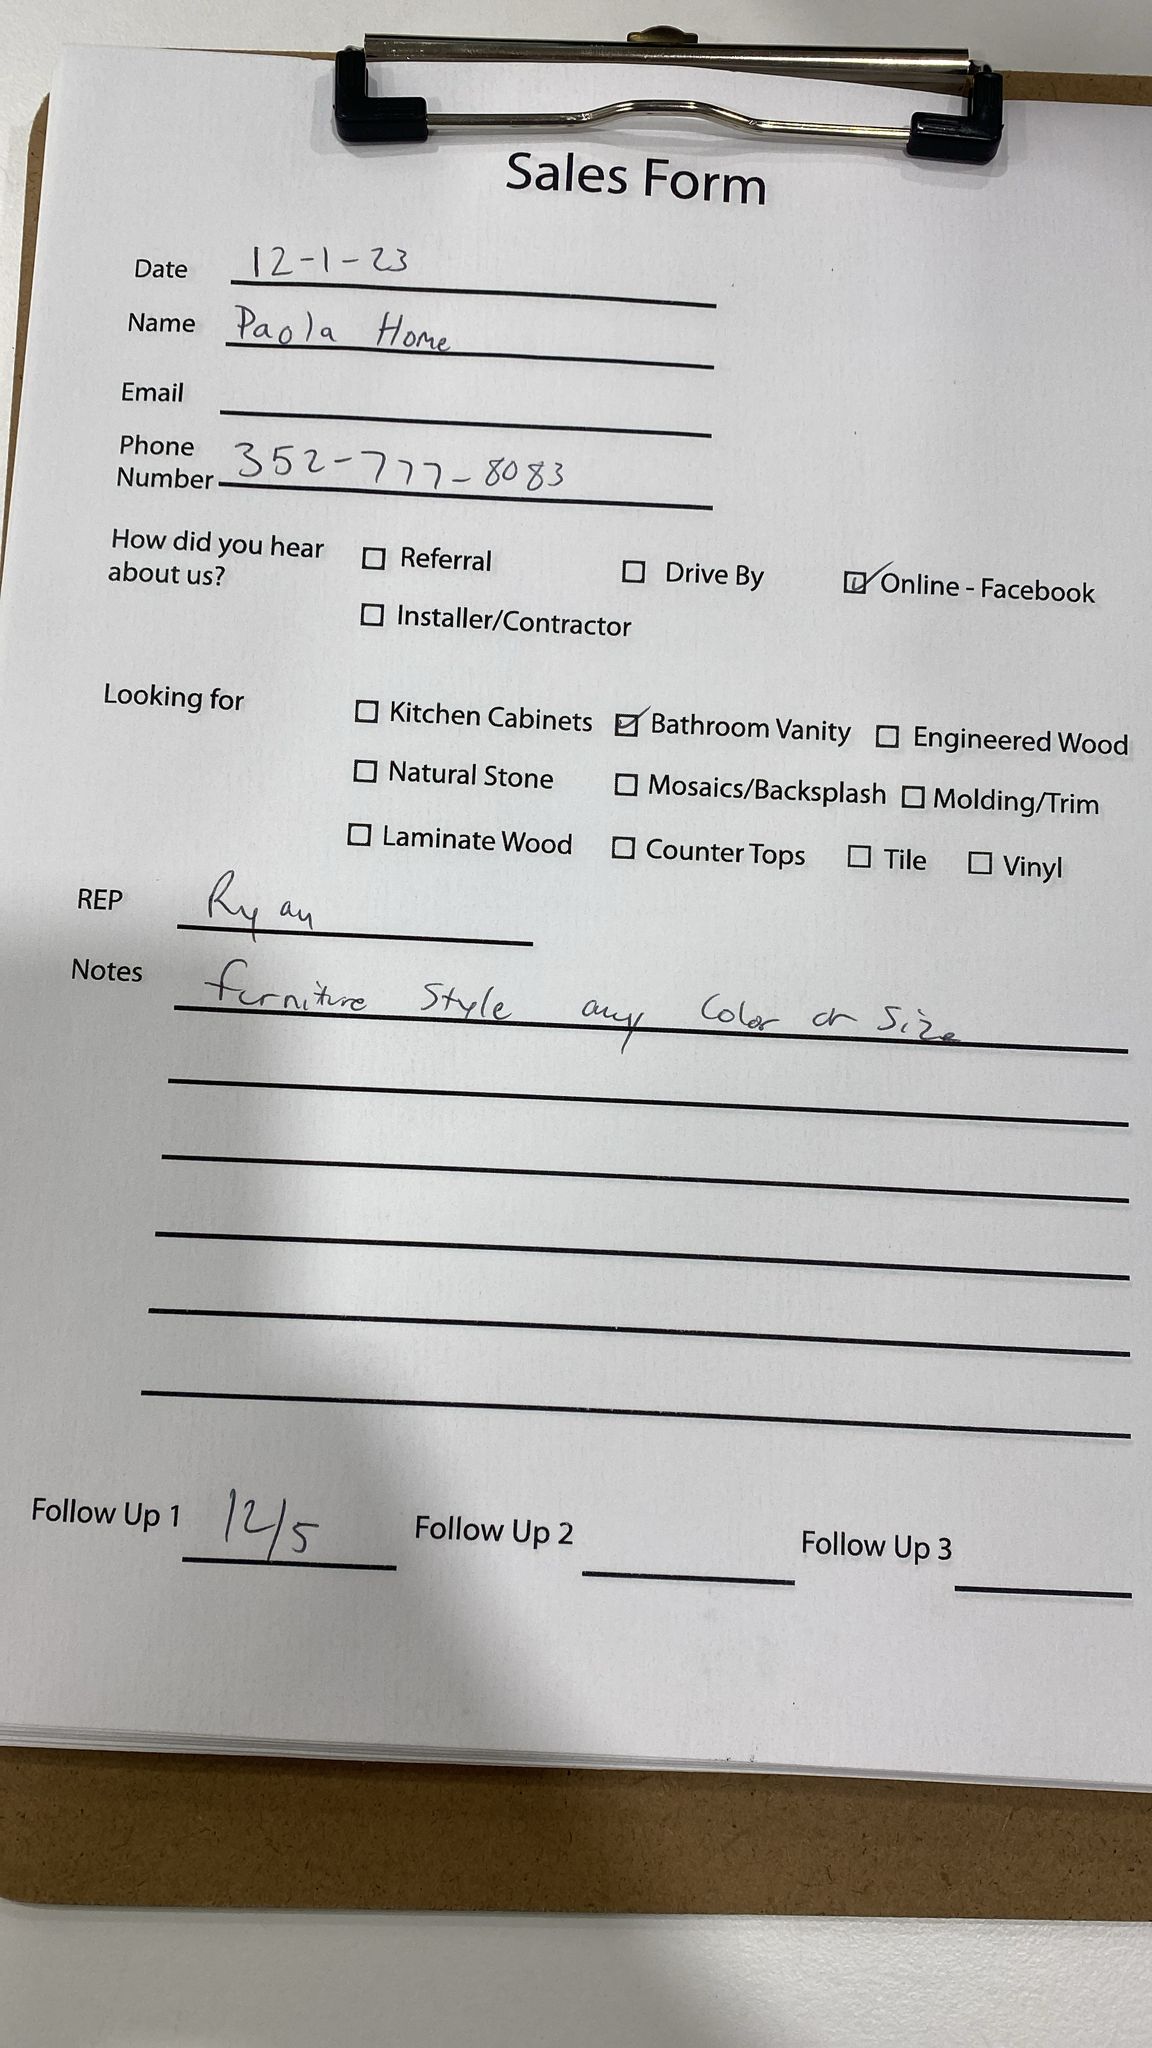 Sales Form
Date 12-1-23
Name Paola Home
Email
Phone
Number 352-777-8083
How did you hear
about us?
Referral Drive By Online - Facebook
Installer/Contractor
Looking for
Kitchen Cabinets Bathroom Vanity Engineered Wood
Natural Stone Mosaics/Backsplash Molding/Trim
Laminate Wood Counter Tops Tile Vinyl
REP Ryan
Notes furniture Style any Color or Size
Follow Up 1 12/5 Follow Up 2 Follow Up 3